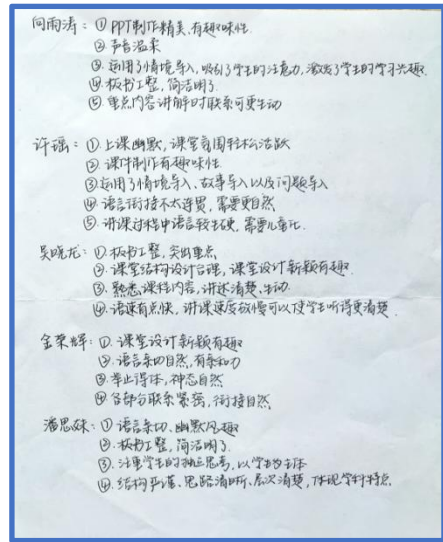 向雨涛：①PPT制作精美，有趣味性．
②声音温柔
③运用了情境导入，吸引了学生的注意力，激发了学生的学习兴趣．
④板书工整，简洁明了．
⑤重点内容讲解时联系可更生动
许瑶：①．上课幽默，课堂氛围轻松活跃
②课件制作有趣味性．
③运用了情境导入、故事导入以及问题导入
④语言衔接不太连贯，需要更自然
⑤．讲课过程中语言较生硬，需要儿童化．
吴晓龙：①板书工整，突出重点
②．课堂结构设计合理，课堂设计新颖有趣．
③．熟悉课程内容，讲述清楚、生动
④．语速有点快，讲课速度放慢可以使学生听得更清楚．
金荣辉：①．课堂设计新颖有趣
②．语言亲切自然，有亲和力
③．举止得体，神态自然
④．各部分联系紧密，衔接自然．
潘思妹：①语言亲切、幽默风趣
②．板书工整，简洁明了．
③．注重学生的独立思考，以学生为主体
④．结构严谨、思路清晰、层次清楚，体现学科特点．